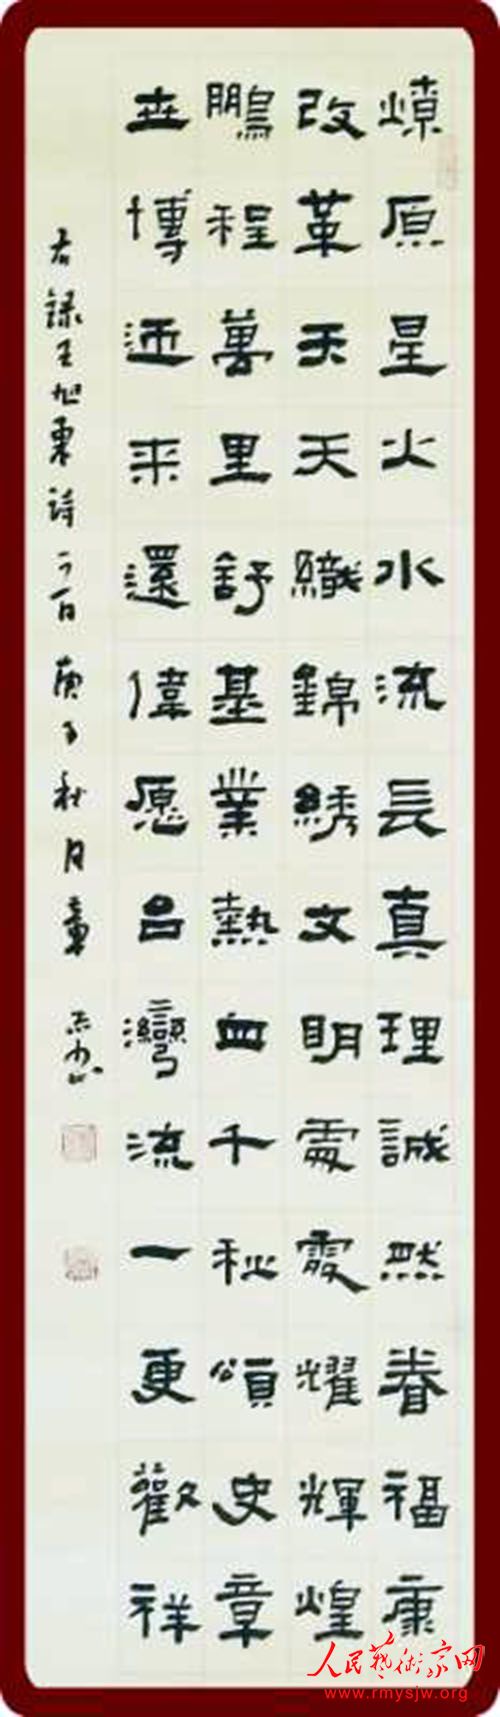 燎原星火水流長真理誠然眷福康
改革天天織錦綉文明處處耀輝煌
鵬程萬里舒基業熱血千秋頌史章
世博迎来還偉愿台灣流一更歡祥
右録王旭東詩一首庚子秋月
人民藝術家网
www.rmysjw.org